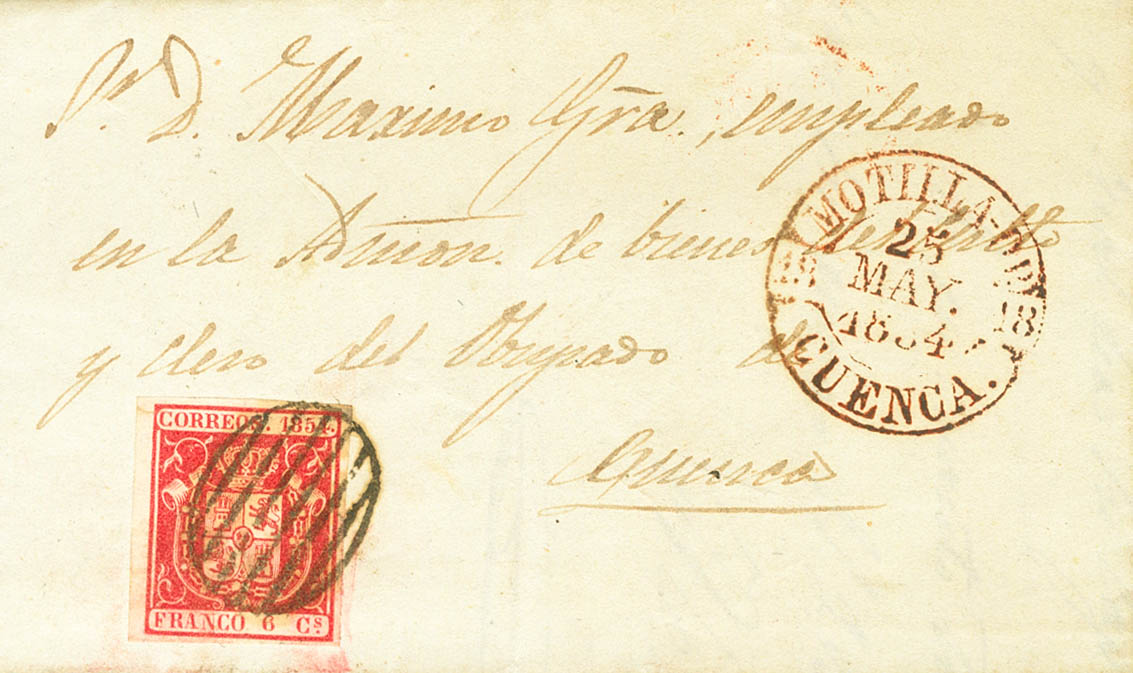 Sr. D. Maximo Gra., empleado
en la Admon. de bienes del
y clero del Obispado de
Cuenca
MOTILLA-
25
MAY.
1854
18 18
CUENCA.
CORREOS. 1854.
FRANCO 6 Cs